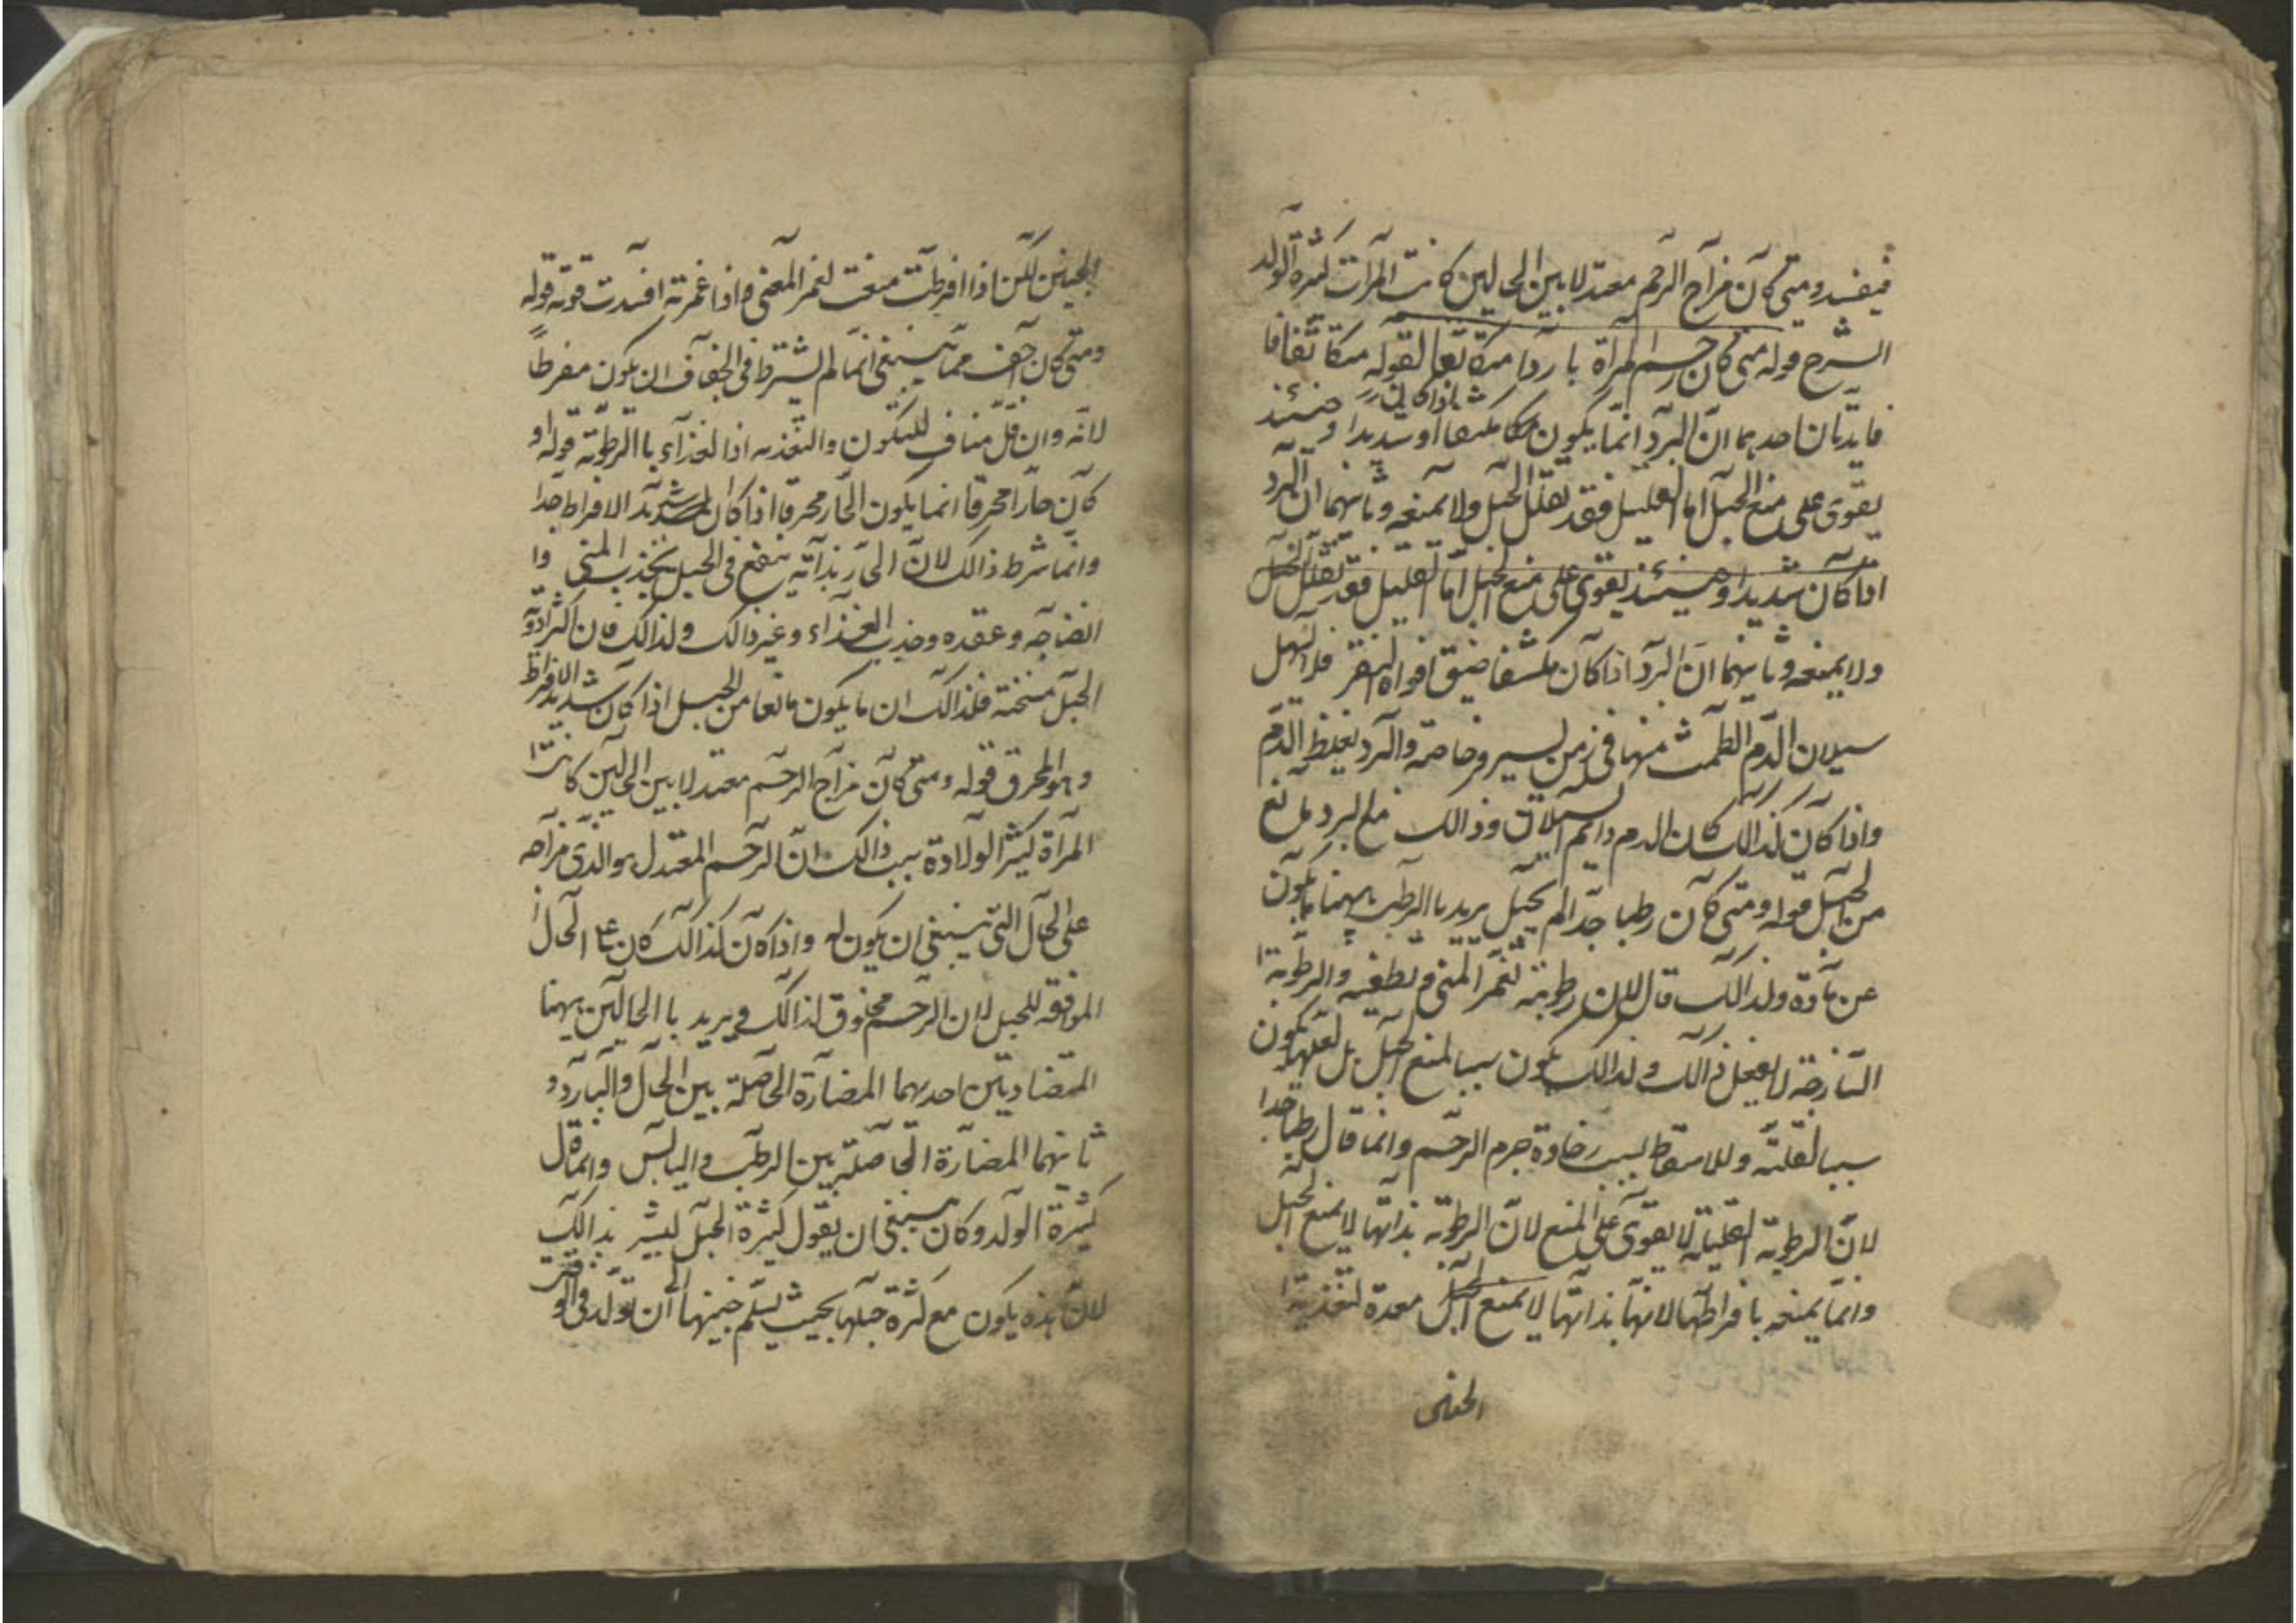 فيفسد ومتى كان مزاج الرحم معتدلا بين الحالين كانت المرات كثرة الولد
الشرح قوله متى كان رحم المرأة باردا متكاثفا لقوله متكاثفا
فايدتان احدهما ان البرد انما يكون متكاثفا اذا كان شديدا وحينئذ
يقوى على منع الحبل اما القليل فقد يقلل الحبل ولا يمنعه وثانيهما ان البرد
اذا كان شديدا وحينئذ يقوى على منع الحبل اما القليل فقد يقلل الحبل
ولا يمنعه وثانيهما ان البرد اذا كان مكثفا ضيق افواه النقر فلا يسهل
سيلان الدم الطمث منها فى زمن يسير وخاصة والبرد يغلظ الدم
واذا كان كذالك كان الدم دايم السيلان وذالك مانع
من الحبل قوله ومتى كان رطبا جدا لم يحبل يريد باالرطب ههنا ما يكون
عن مادة ولذالك قال لان رطوبته تغمر المنى و تطفيه والرطوبة ا
لساذجة لا يفعل ذالك ولذالك يكون سببا لمنع الحبل بل لعلها يكون
سببا لقلته وللاسقاط بسبب رخاوة جرم الرحم وانما قال رطبا جدا
لان الرطوبة القليلة لا يقوى على المنع لان الرطوبة بذاتها لا يمنع الحبل
وانما يمنعه بافراطها لانها بذاتها لا يمنع الحبل معدة لتغذية ا
الجنين
الجنين لكن اذا افرطت منعت لغمر المنى فاذا غمرته افسدت قوته قوله
ومتى كان اجف مما ينبغى انما لم يشترط فى الجفاف ان يكون مفرطا
لانه وان قل مناف للتكون والتغذيه اذ الغذآء باالرطوبة قوله او
كان حارا محرقا انما يكون الحار محرقا اذا كان شديد الافراط جدا
وانما شرط ذالك لان الحار بذاته ينفع فى الحبل بجذب المنى وا
نضاجه وعقده وجذب الغذآء وغير ذالك ولذالك فان اكثر ادوية
الحبل مسخنة فلذالك ان ما يكون مانعا من الحبل اذا كان شديد الافراط
وهو المحرق قوله ومتى كان مزاج الرحم معتدلا بين الحالين كانت ا
لمرآة كثير الولادة سبب ذالك ان الرحم المعتدل هو الذى مزاجه
على الحال التى ينبغى ان يكون له واذا كان كذالك كان على الحال ا
لموافقه للحبل لان الرحم مخلوق لذالك ويريد باالحالين ههنا
المتضاديتين احدهما المضارة الحاصلة بين الحار والبارد و
ثانيهما المضارة الحاصلة بين الرطب واليابس وانما قال
كثيرة الولد وكان ينبغى ان يقول كثيرة الحبل ليشير بذالك
لان هذه يكون مع كثرة حبلها بحيث يسلم جنينها الى ان تولد فى الوقت